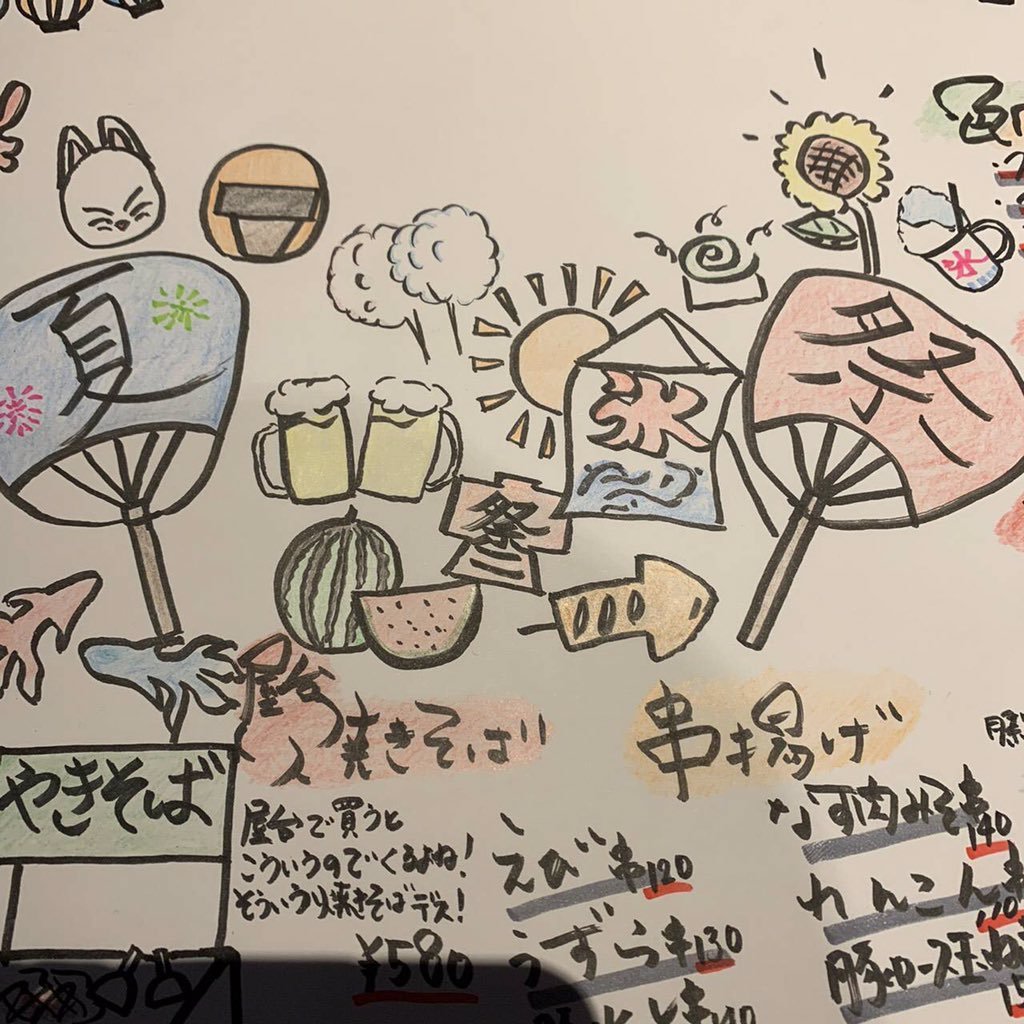 夏
祭
氷
氷
祭
屋台
焼きそば
やきそば
屋台で買うと
こういうのでくるよね!
そういう焼きそばデス!
¥580
串揚げ
えび串120
うずら串130
なす肉みそ串140
れんこん串